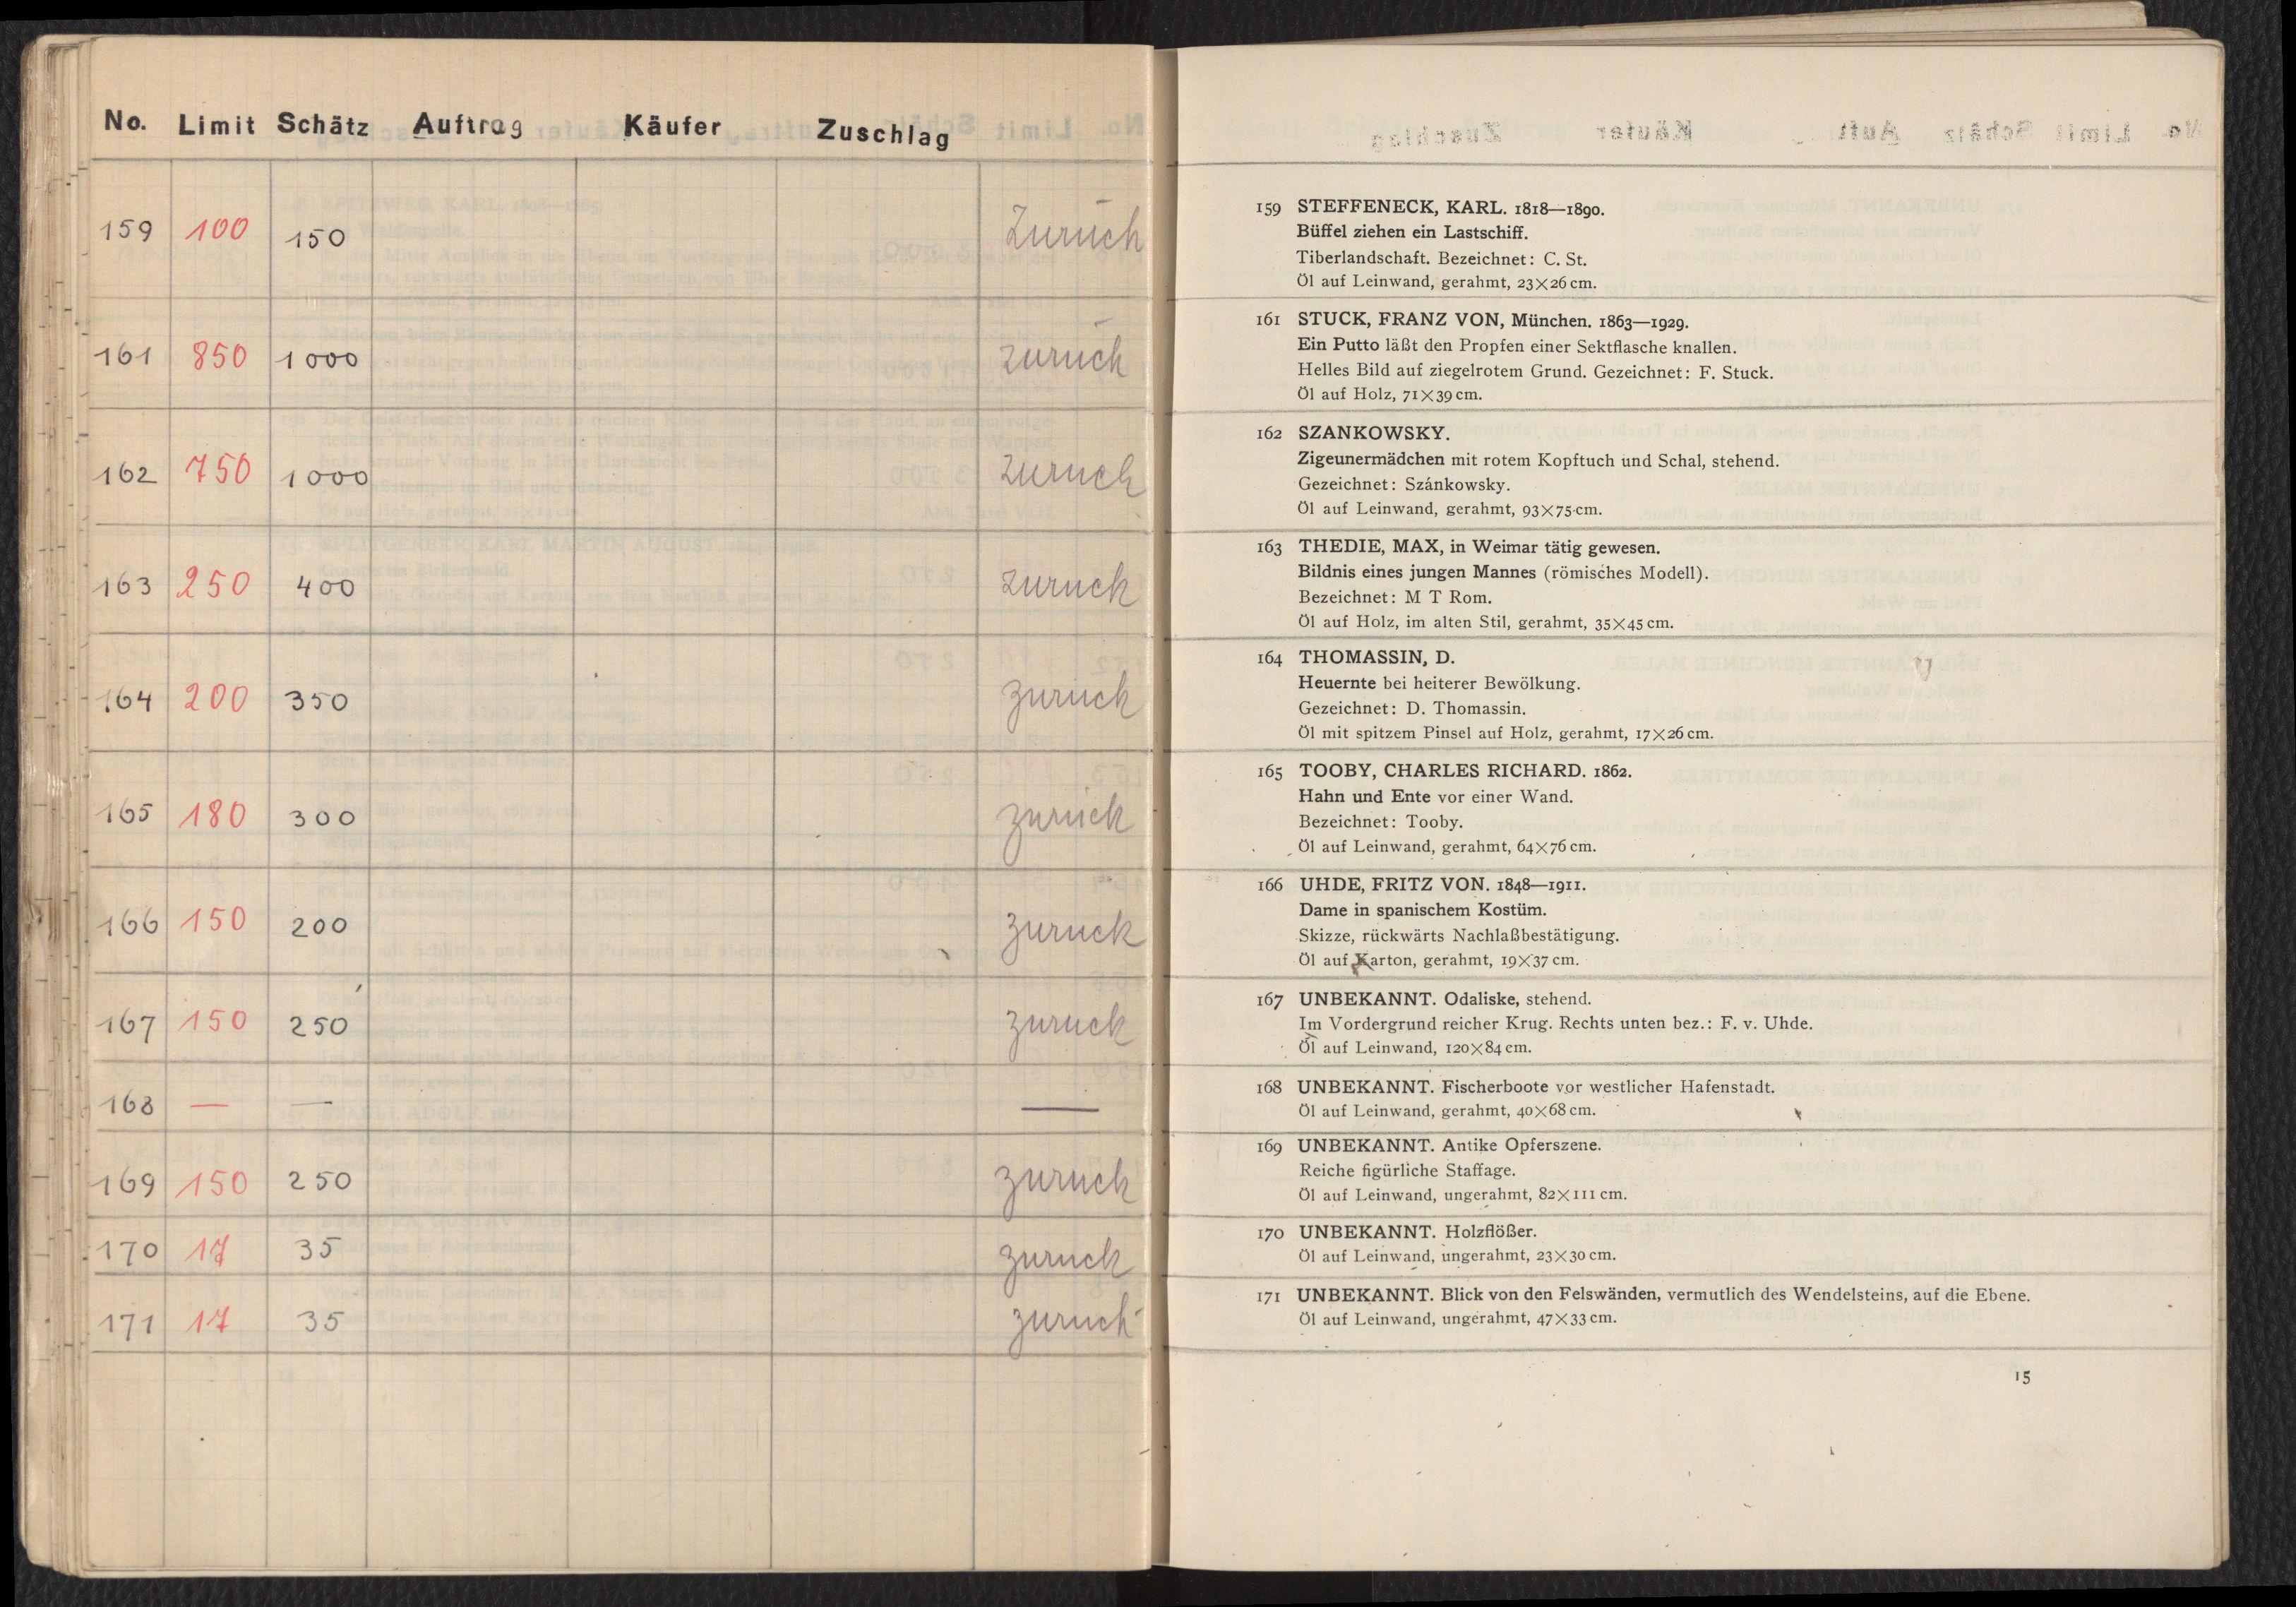 No. Limit Schätz Auftrag Käufer Zuschlag
159 100 150 Zurück
161 850 1000 zurück
162 750 1000 zurück
163 250 400 zurück
164 200 350 zurück
165 180 300 zurück
166 150 200 zuruck
167 150 250 zuruck
168 — — —
169 150 250 zuruck
170 17 35 zuruck
171 17 35 zuruck
159 STEFFENECK, KARL. 1818—1890.
Büffel ziehen ein Lastschiff.
Tiberlandschaft. Bezeichnet: C. St.
Öl auf Leinwand, gerahmt, 23×26 cm.
161 STUCK, FRANZ VON, München. 1863—1929.
Ein Putto läßt den Propfen einer Sektflasche knallen.
Helles Bild auf ziegelrotem Grund. Gezeichnet: F. Stuck.
Öl auf Holz, 71×39 cm.
162 SZANKOWSKY.
Zigeunermädchen mit rotem Kopftuch und Schal, stehend.
Gezeichnet: Szánkowsky.
Öl auf Leinwand, gerahmt, 93×75 cm.
163 THEDIE, MAX, in Weimar tätig gewesen.
Bildnis eines jungen Mannes (römisches Modell).
Bezeichnet: M T Rom.
Öl auf Holz, im alten Stil, gerahmt, 35×45 cm.
164 THOMASSIN, D.
Heuernte bei heiterer Bewölkung.
Gezeichnet: D. Thomassin.
Öl mit spitzem Pinsel auf Holz, gerahmt, 17×26 cm.
165 TOOBY, CHARLES RICHARD. 1862.
Hahn und Ente vor einer Wand.
Bezeichnet: Tooby.
Öl auf Leinwand, gerahmt, 64×76 cm.
166 UHDE, FRITZ VON. 1848—1911.
Dame in spanischem Kostüm.
Skizze, rückwärts Nachlaßbestätigung.
Öl auf Karton, gerahmt, 19×37 cm.
167 UNBEKANNT. Odaliske, stehend.
Im Vordergrund reicher Krug. Rechts unten bez.: F. v. Uhde.
Öl auf Leinwand, 120×84 cm.
168 UNBEKANNT. Fischerboote vor westlicher Hafenstadt.
Öl auf Leinwand, gerahmt, 40×68 cm.
169 UNBEKANNT. Antike Opferszene.
Reiche figürliche Staffage.
Öl auf Leinwand, ungerahmt, 82×111 cm.
170 UNBEKANNT. Holzflößer.
Öl auf Leinwand, ungerahmt, 23×30 cm.
171 UNBEKANNT. Blick von den Felswänden, vermutlich des Wendelsteins, auf die Ebene.
Öl auf Leinwand, ungerahmt, 47×33 cm.
15